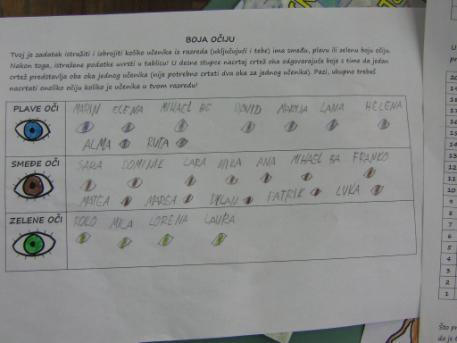 BOJA OČIJU
Tvoj je zadatak istražiti i izbrojiti koliko učenika iz razreda (uključujući i tebe) ima smeđu, plavu ili zelenu boju očiju.
Nakon toga, istražene podatke uvrsti u tablicu! U desne stupce nacrtaj crtež oka odgovarajuće boje s time da jedan
crtež predstavlja oba oka jednog učenika (nije potrebno crtati dva oka za jednog učenika). Pazi, ukupno trebaš
nacrtati onoliko očiju koliko je učenika u tvom razredu!
PLAVE OČI
MARIN ELENA MIHAEL BE DAVID MARIJA LANA HELENA
ALMA RUTA
SMEĐE OČI
SARA DOMINIK LARA NIKA ANA MIHAEL BA FRANKO
MATEA DYLAN PATRIK LUKA
ZELENE OČI
ROKO MILA LORENA LAURA